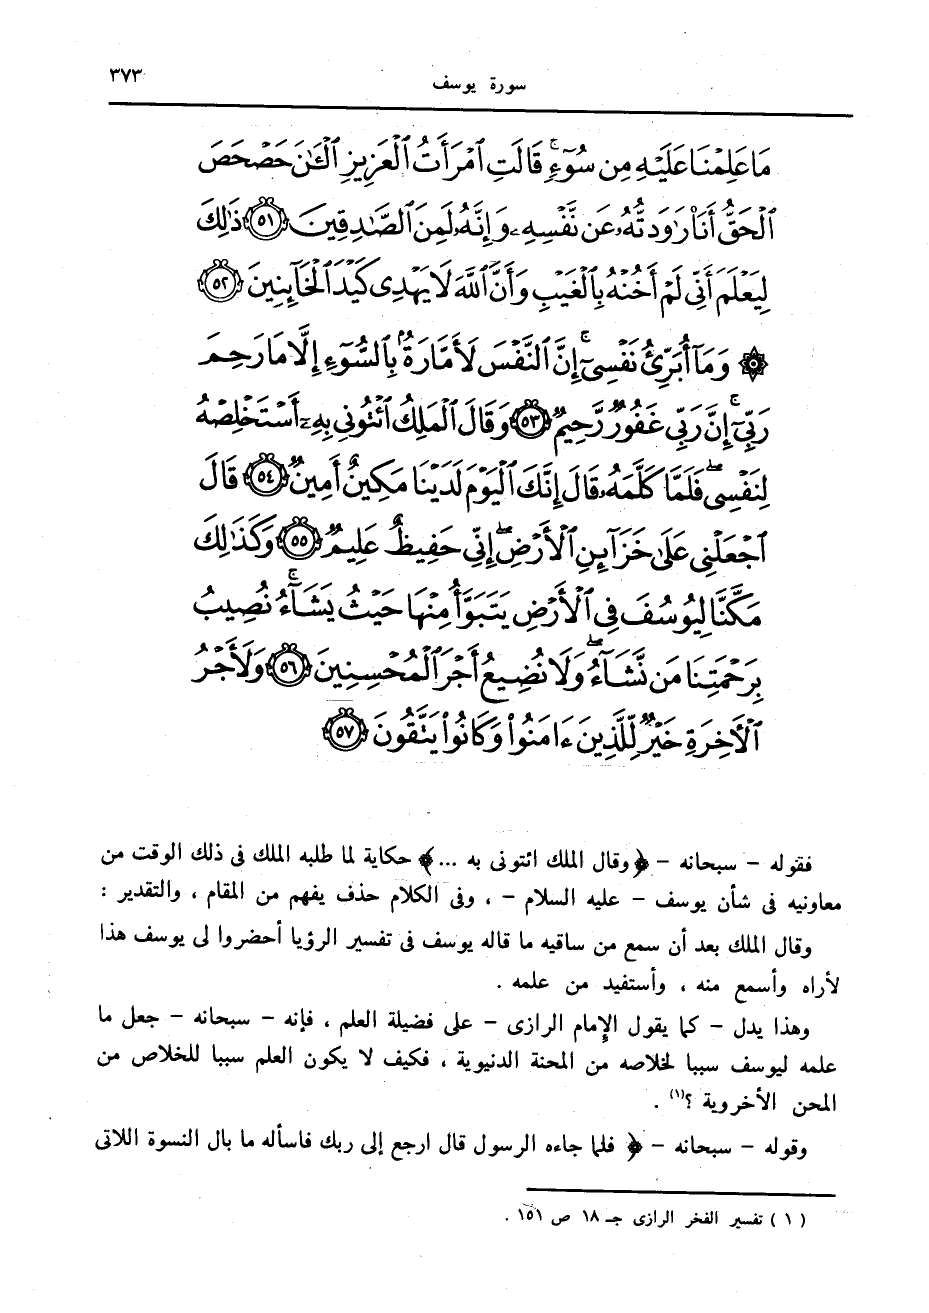 سورة يوسف
٣٧٣
مَا عَلِمْنَا عَلَيْهِ مِن سُوٓءٍ ۚ قَالَتِ ٱمْرَأَتُ ٱلْعَزِيزِ ٱلْـَٰٔنَ حَصْحَصَ
ٱلْحَقُّ أَنَا۠ رَٰوَدتُّهُۥ عَن نَّفْسِهِۦ وَإِنَّهُۥ لَمِنَ ٱلصَّـٰدِقِينَ ٥١ ذَٰلِكَ
لِيَعْلَمَ أَنِّى لَمْ أَخُنْهُ بِٱلْغَيْبِ وَأَنَّ ٱللَّهَ لَا يَهْدِى كَيْدَ ٱلْخَآئِنِينَ ٥٢
۞ وَمَآ أُبَرِّئُ نَفْسِىٓ ۚ إِنَّ ٱلنَّفْسَ لَأَمَّارَةٌۢ بِٱلسُّوٓءِ إِلَّا مَا رَحِمَ
رَبِّىٓ ۚ إِنَّ رَبِّى غَفُورٌ رَّحِيمٌ ٥٣ وَقَالَ ٱلْمَلِكُ ٱئْتُونِى بِهِۦٓ أَسْتَخْلِصْهُ
لِنَفْسِى ۖ فَلَمَّا كَلَّمَهُۥ قَالَ إِنَّكَ ٱلْيَوْمَ لَدَيْنَا مَكِينٌ أَمِينٌ ٥٤ قَالَ
ٱجْعَلْنِى عَلَىٰ خَزَآئِنِ ٱلْأَرْضِ ۖ إِنِّى حَفِيظٌ عَلِيمٌ ٥٥ وَكَذَٰلِكَ
مَكَّنَّا لِيُوسُفَ فِى ٱلْأَرْضِ يَتَبَوَّأُ مِنْهَا حَيْثُ يَشَآءُ ۚ نُصِيبُ
بِرَحْمَتِنَا مَن نَّشَآءُ ۖ وَلَا نُضِيعُ أَجْرَ ٱلْمُحْسِنِينَ ٥٦ وَلَأَجْرُ
ٱلْـَٔاخِرَةِ خَيْرٌ لِّلَّذِينَ ءَامَنُوا۟ وَكَانُوا۟ يَتَّقُونَ ٥٧
فقوله – سبحانه – ﴿ وقال الملك ائتونى به ... ﴾ حكاية لما طلبه الملك فى ذلك الوقت من
معاونيه فى شأن يوسف – عليه السلام – ، وفى الكلام حذف يفهم من المقام ، والتقدير :
وقال الملك بعد أن سمع من ساقيه ما قاله يوسف فى تفسير الرؤيا أحضروا لى يوسف هذا
لأراه وأسمع منه ، وأستفيد من علمه .
وهذا يدل – كما يقول الإمام الرازى – على فضيلة العلم ، فإنه – سبحانه – جعل ما
علمه ليوسف سببا لخلاصه من المحنة الدنيوية ، فكيف لا يكون العلم سببا للخلاص من
المحن الأخروية ؟(١) .
وقوله – سبحانه – ﴿ فلما جاءه الرسول قال ارجع إلى ربك فاسأله ما بال النسوة اللاتى
( ١ ) تفسير الفخر الرازى جـ ١٨ ص ١٥١ .